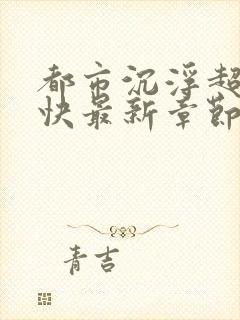 都市沉浮超
快最新章節
青吉